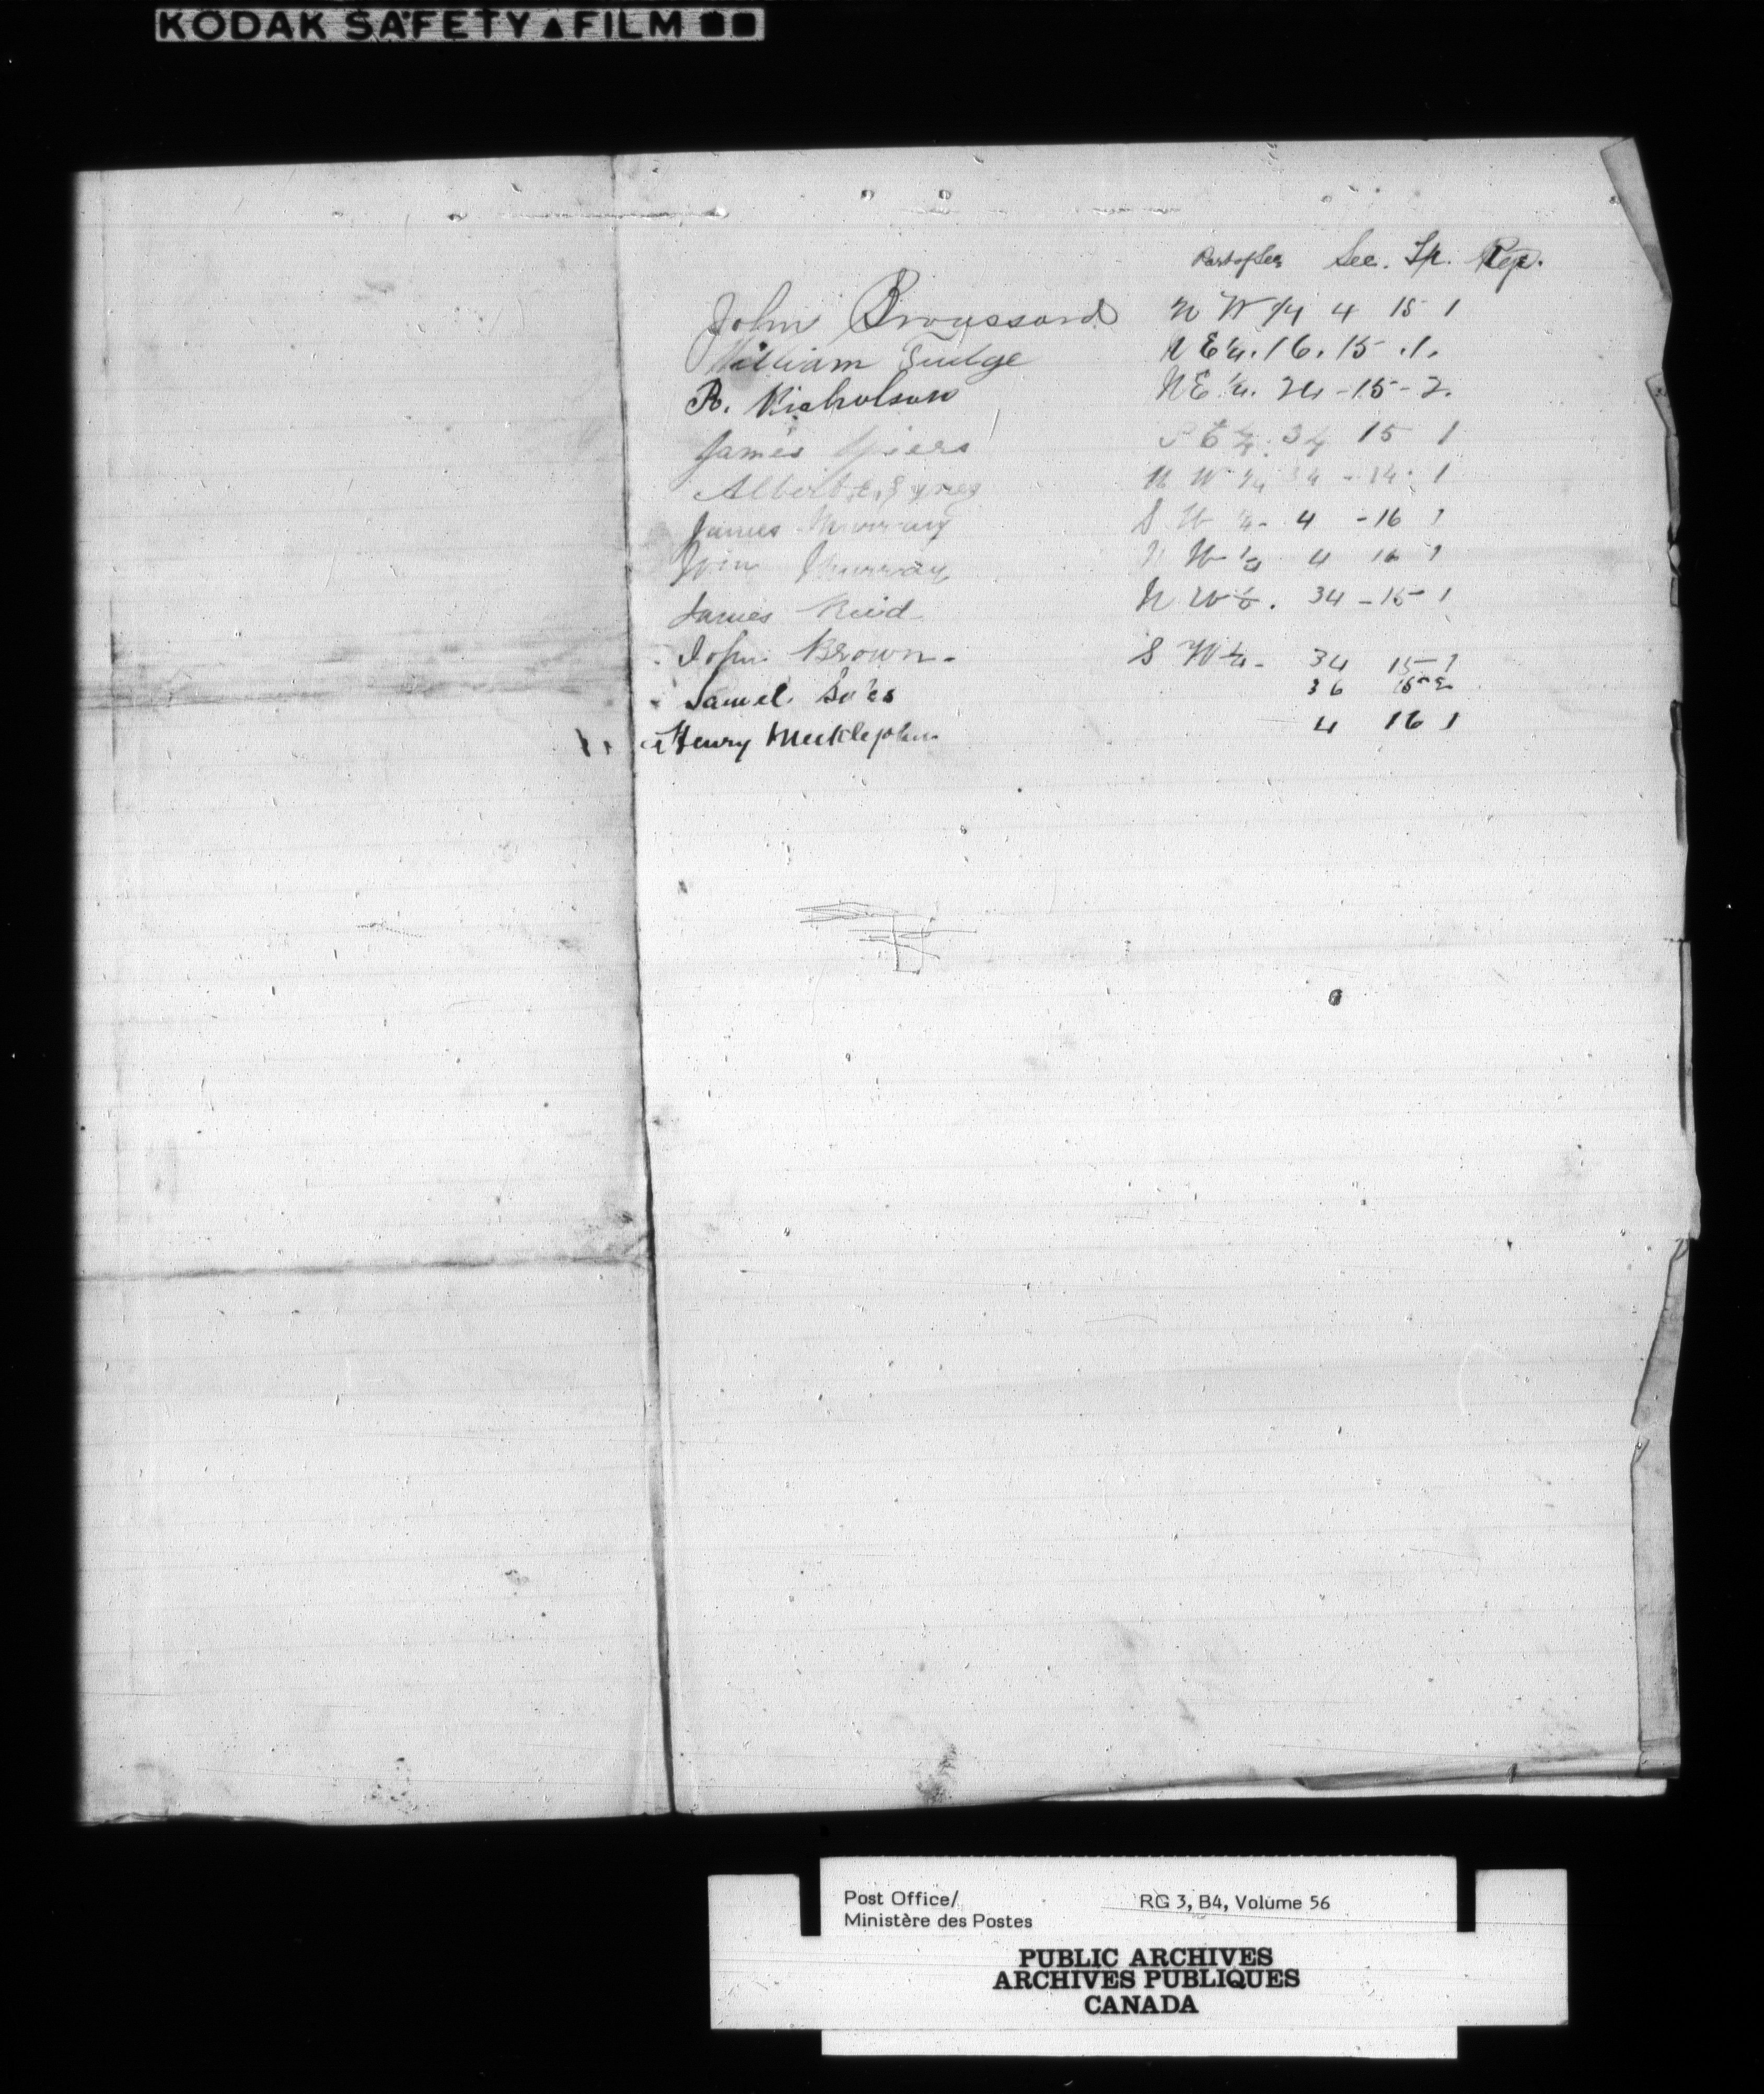 KODAK SAFETY ▲ FILM
Part of Sec Sec. Tp. Rge.
John Broussard N W 1/4 4 15 1
William Gudge N E 1/4. 16. 15 . 1.
R. Nicholson N E 1/4. 24 - 15 - 2.
James Spiers S E 1/4. 34 15 1
Albert E. N W 1/4 34 - 14 . 1
James Murray S W 1/4 - 4 - 16 1
John Murray N W 1/4 4 16 1
James Reid N W 1/4. 34 - 15 - 1
John Brown - S W 1/4 - 34 15 - 1
Samuel 36 15 - 2
Henry Meiklejohn 4 16 1
Post Office/ RG 3, B4, Volume 56
Ministère des Postes
PUBLIC ARCHIVES
ARCHIVES PUBLIQUES
CANADA